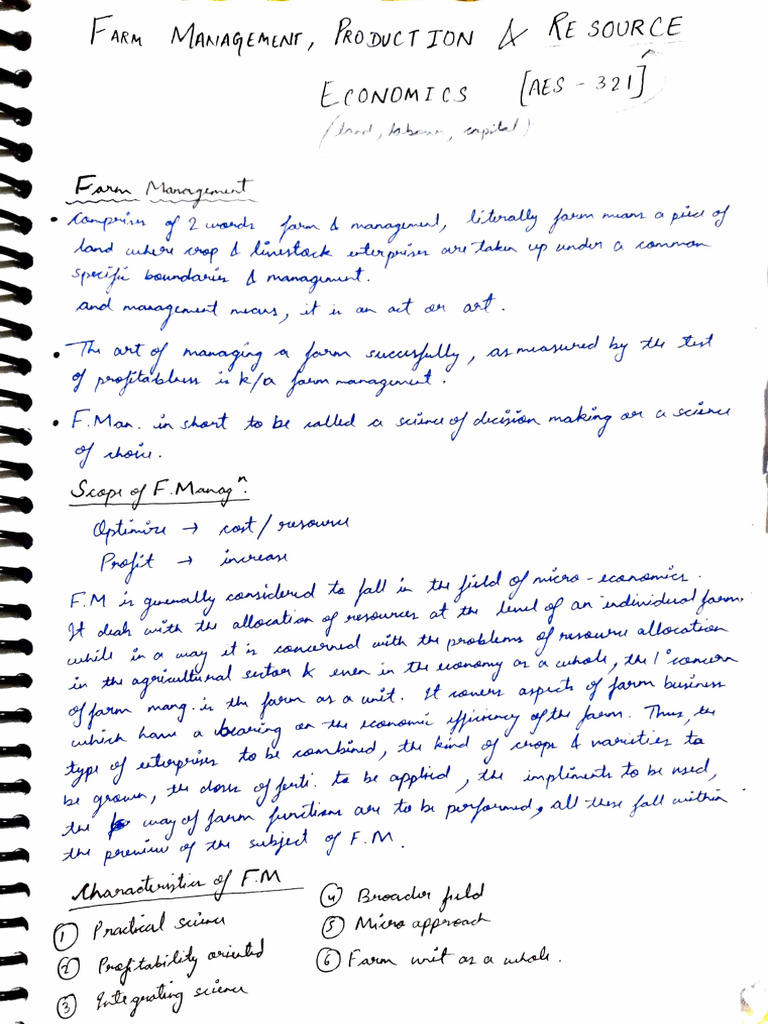 FARM MANAGEMENT, PRODUCTION & RESOURCE
ECONOMICS [AES - 321]
(land, labour, capital)
Farm Management
• Comprises of 2 words farm & management, literally farm means a piece of
land where crop & livestock enterprises are taken up under a common
specific boundaries & management.
and management means, it is an act or art.
• The art of managing a farm succesfully, as measured by the test
of profitabless is k/a farm management.
• F.Man. in short to be called a science of decision making or a science
of choice.
Scope of F.Managⁿ.
Optimize → cost/resource
Profit → increase
F.M is generally considered to fall in the field of micro-economics.
It deals with the allocation of resources at the level of an individual farm.
while in a way it is concerned with the problems of resource allocation
in the agricultural sector & even in the economy as a whole, the 1° concern
of farm mang. is the farm as a unit. It covers aspects of farm business
which have a bearing on the economic efficiency of the farm. Thus, the
type of enterprises to be combined, the kind of crops & varieties to
be grown, the doses of ferti. to be applied, the impliments to be used,
the way of farm functions are to be performed, all these fall within
the preview of the subject of F.M.
Characteristics of F.M
① Practical science
② Profitability oriented
③ Integrating science
④ Broader field
⑤ Micro approach
⑥ Farm unit as a whole.